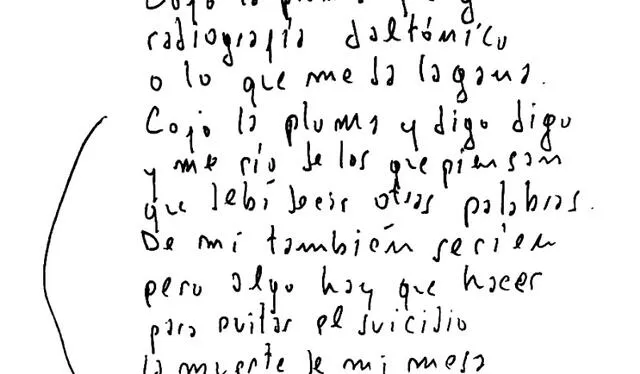 Cojo la pluma y
radiografía daltónico
o lo que me da la gana.
Cojo la pluma y digo digo
y me río de los que piensan
que debí decir otras palabras.
De mí también se ríen
pero algo hay que hacer
para evitar el suicidio
la muerte de mi mesa